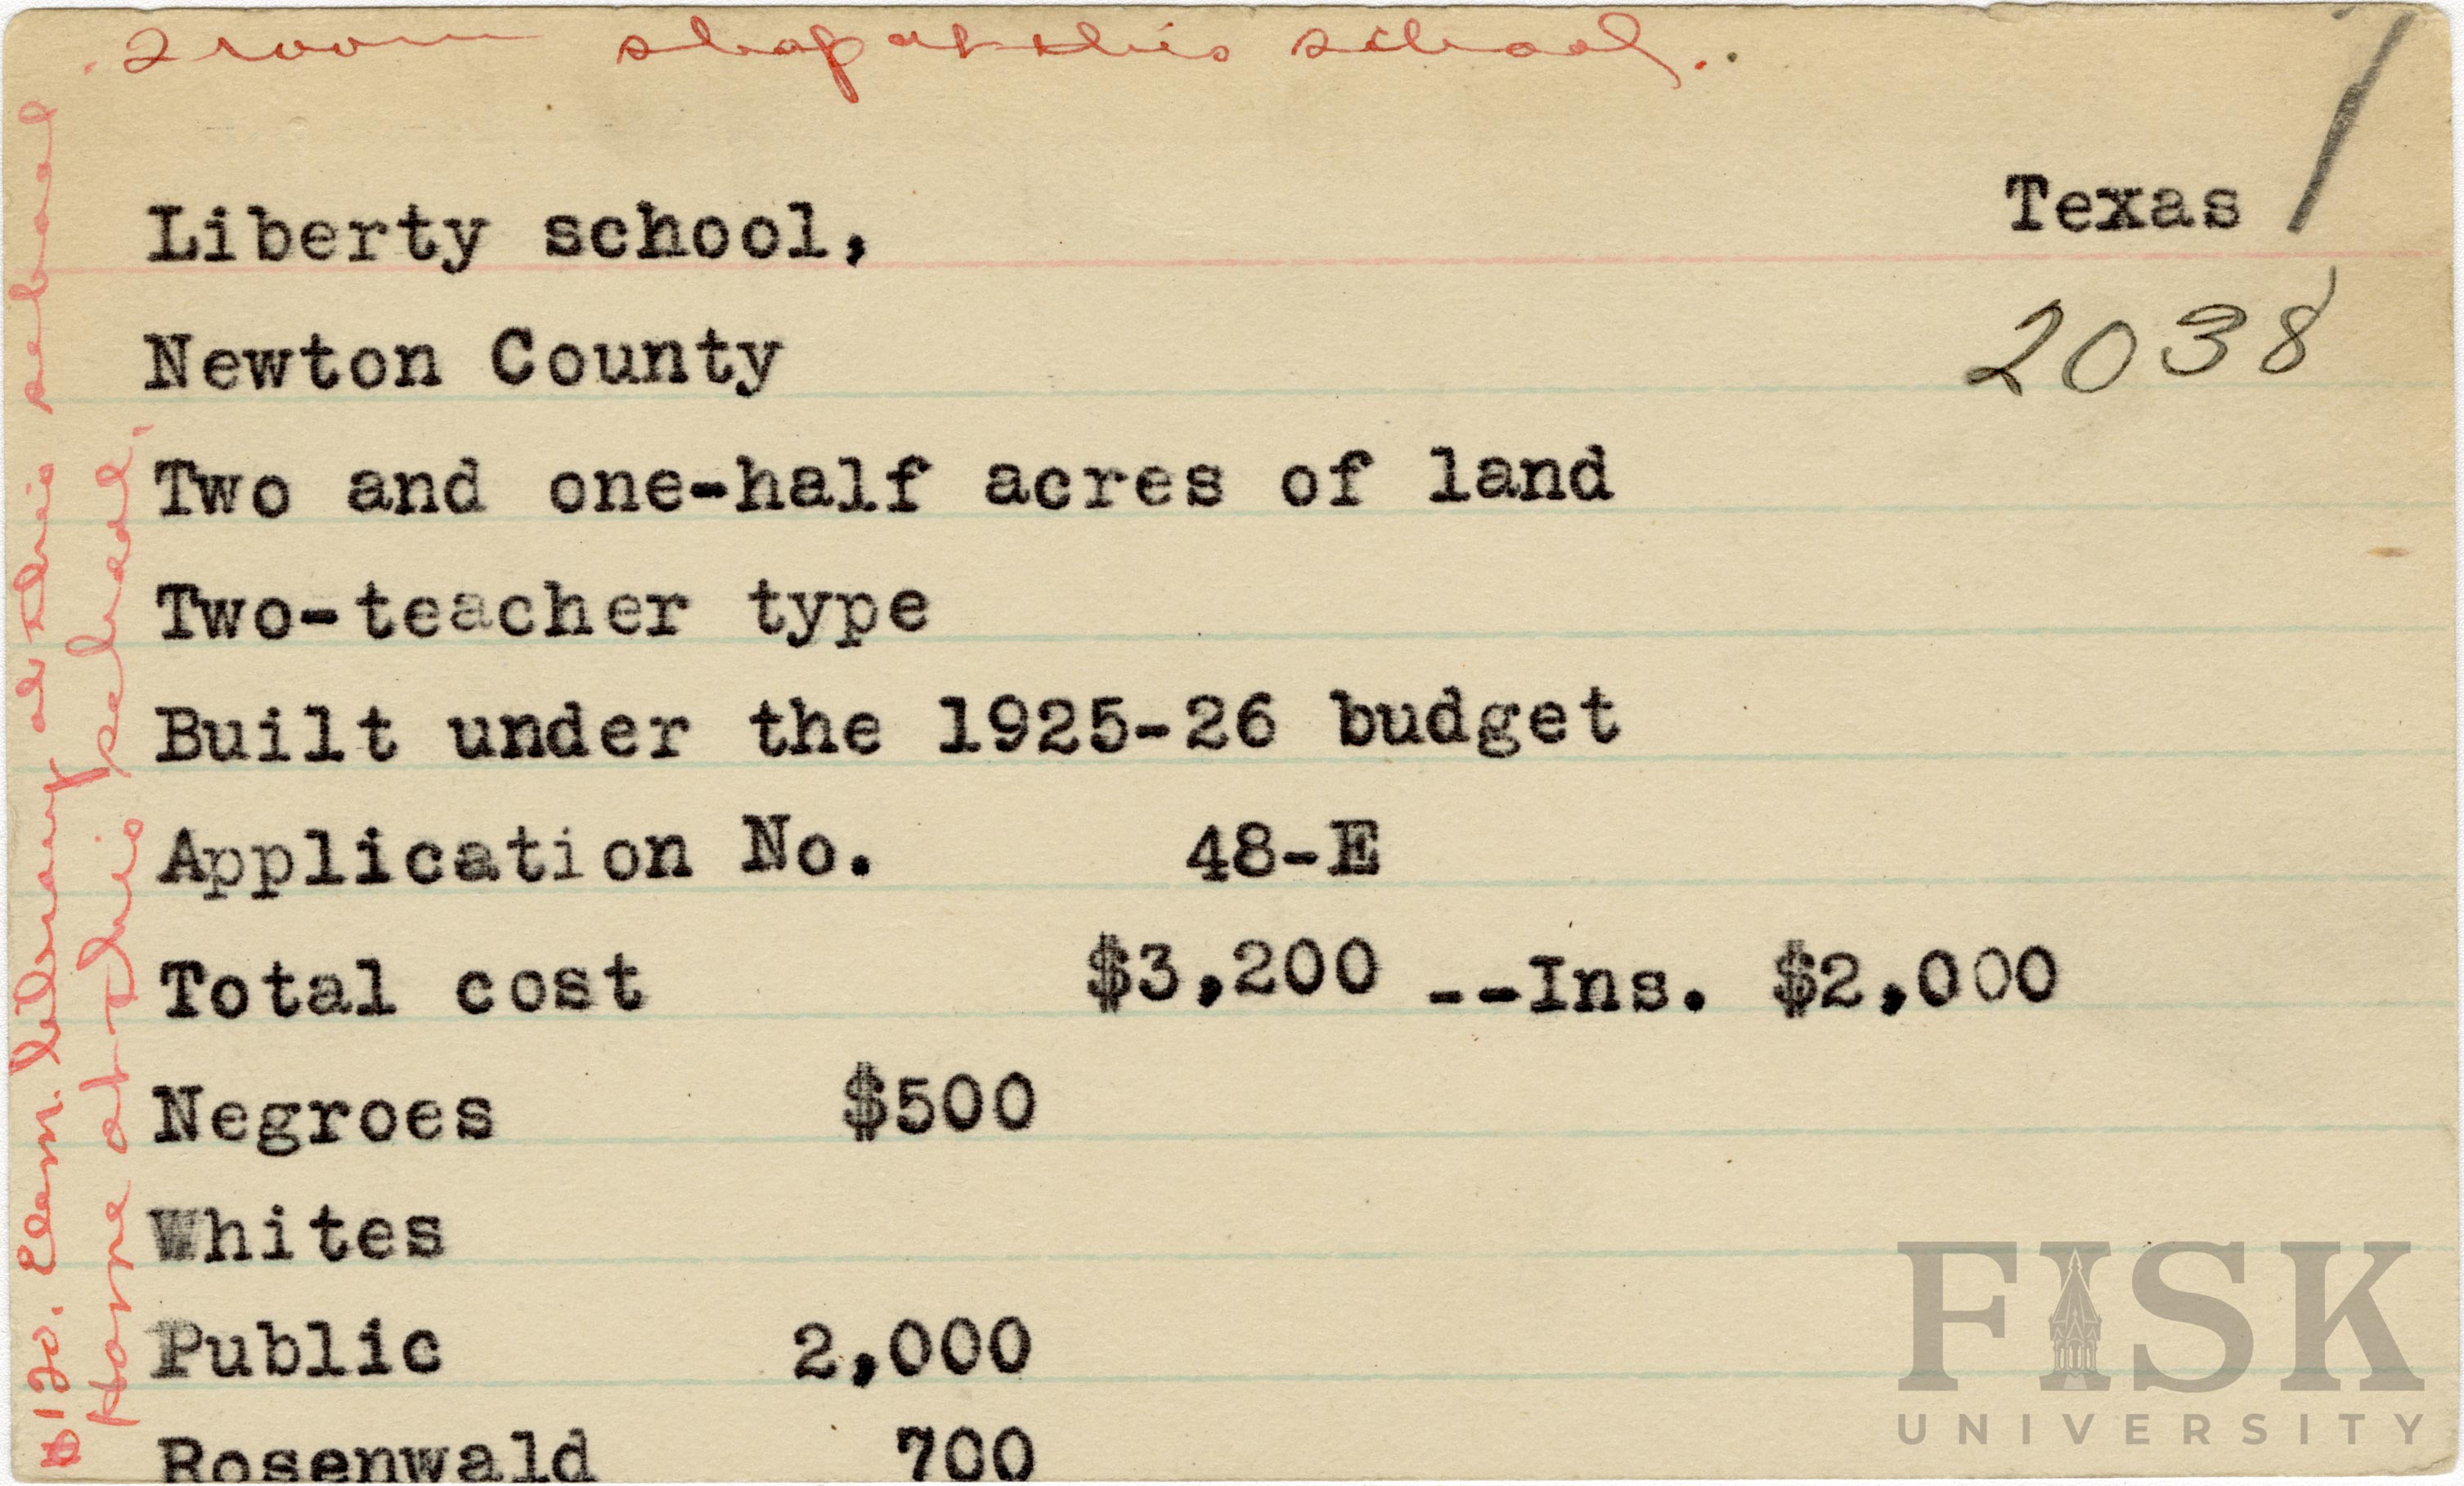 2 room shop at this school.
Texas
Liberty school,
2038
Newton County
Two and one-half acres of land
Two-teacher type
Built under the 1925-26 budget
Application No. 48-E
Total cost $3,200 --Ins. $2,000
Negroes $500
Whites
Public 2,000
Rosenwald 700
$120. Elem. library at this school
Home at this school.
FISK
UNIVERSITY